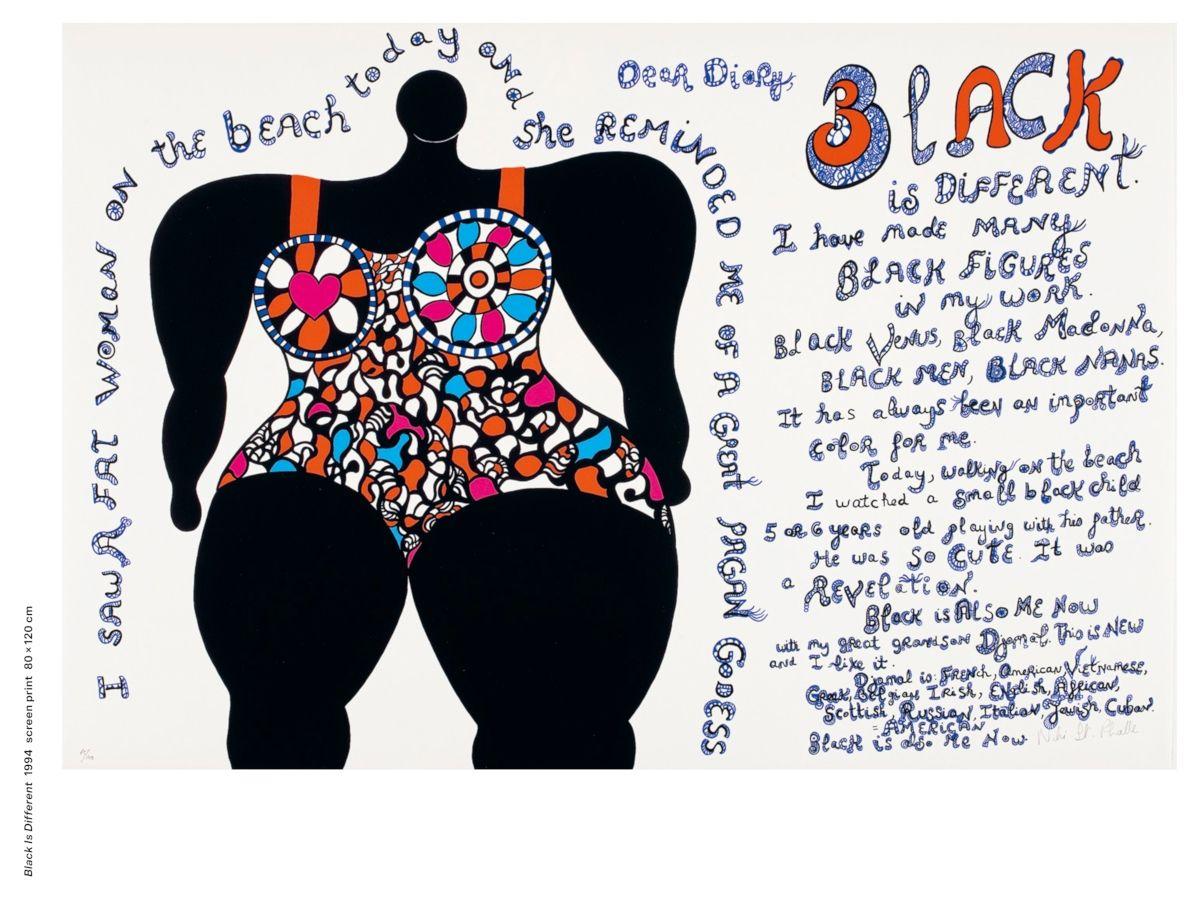 I SAW A FAT WOMAN ON the BEACH today AND she REMINDED ME OF A GREAT PAGAN GODESS
Dear Diary,
BlACK
is DIFFERENT.
I have made MANY
BLACK FIGURES
in my work.
Black Venus, Black Madonna,
BLACK MEN, BLACK NANAS.
It has always been an important
color for me.
Today, walking on the beach
I watched a small black child
5 or 6 years old playing with his father.
He was SO CUTE. It was
a REVElatiON.
Black is ALSO ME NOW
with my great grandson Djamal. This is NEW
and I like it.
Djamal is: FRENch, American Vietnamese,
Greek, Belgian Irish, English, African,
Scottish, Russian, Italian, Jewish, Cuban.
= AMERICAN
Black is also Me Now
Niki St. Phalle
Black Is Different 1994 screen print 80 × 120 cm